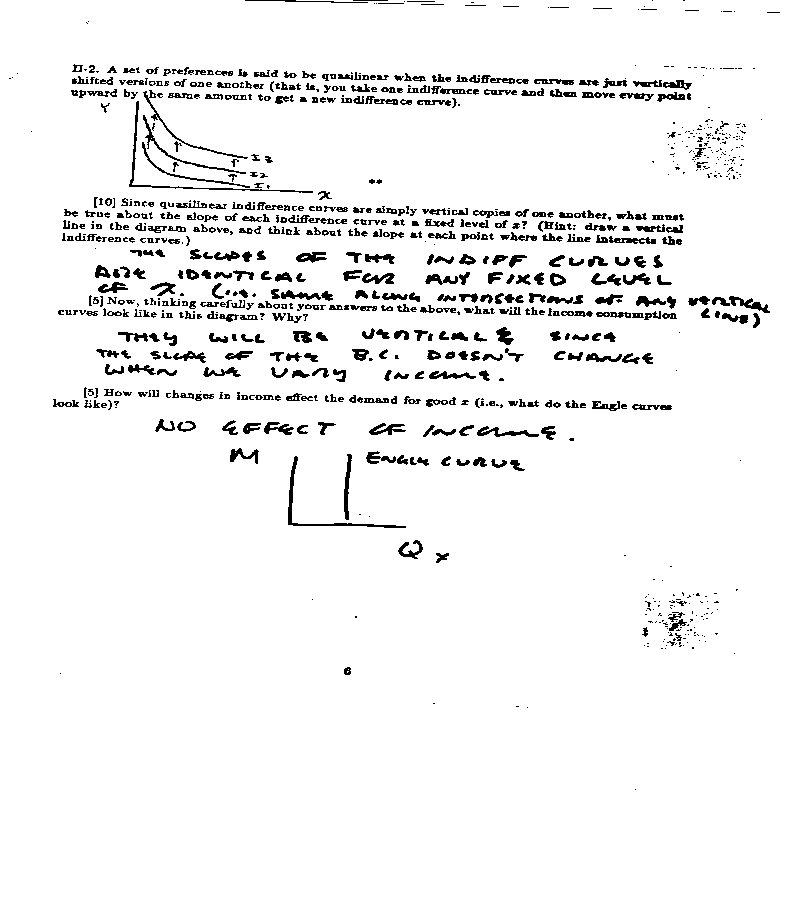 II-2. A set of preferences is said to be quasilinear when the indifference curves are just vertically
shifted versions of one another (that is, you take one indifference curve and then move every point
upward by the same amount to get a new indifference curve).
Y
I3
I2
I1
X
**
[10] Since quasilinear indifference curves are simply vertical copies of one another, what must
be true about the slope of each indifference curve at a fixed level of x? (Hint: draw a vertical
line in the diagram above, and think about the slope at each point where the line intersects the
indifference curves.)
THE SLOPES OF THE INDIFF CURVES
ARE IDENTICAL FOR ANY FIXED LEVEL
OF X. (i.e. SAME ALONG INTERSECTIONS OF ANY VERTICAL
LINE)
[5] Now, thinking carefully about your answers to the above, what will the income consumption
curves look like in this diagram? Why?
THEY WILL BE VERTICAL SINCE
THE SLOPE OF THE B.C. DOESN'T CHANGE
WHEN WE VARY INCOME.
[5] How will changes in income effect the demand for good x (i.e., what do the Engle curves
look like)?
NO EFFECT OF INCOME.
M
ENGLE CURVE
Q x
6